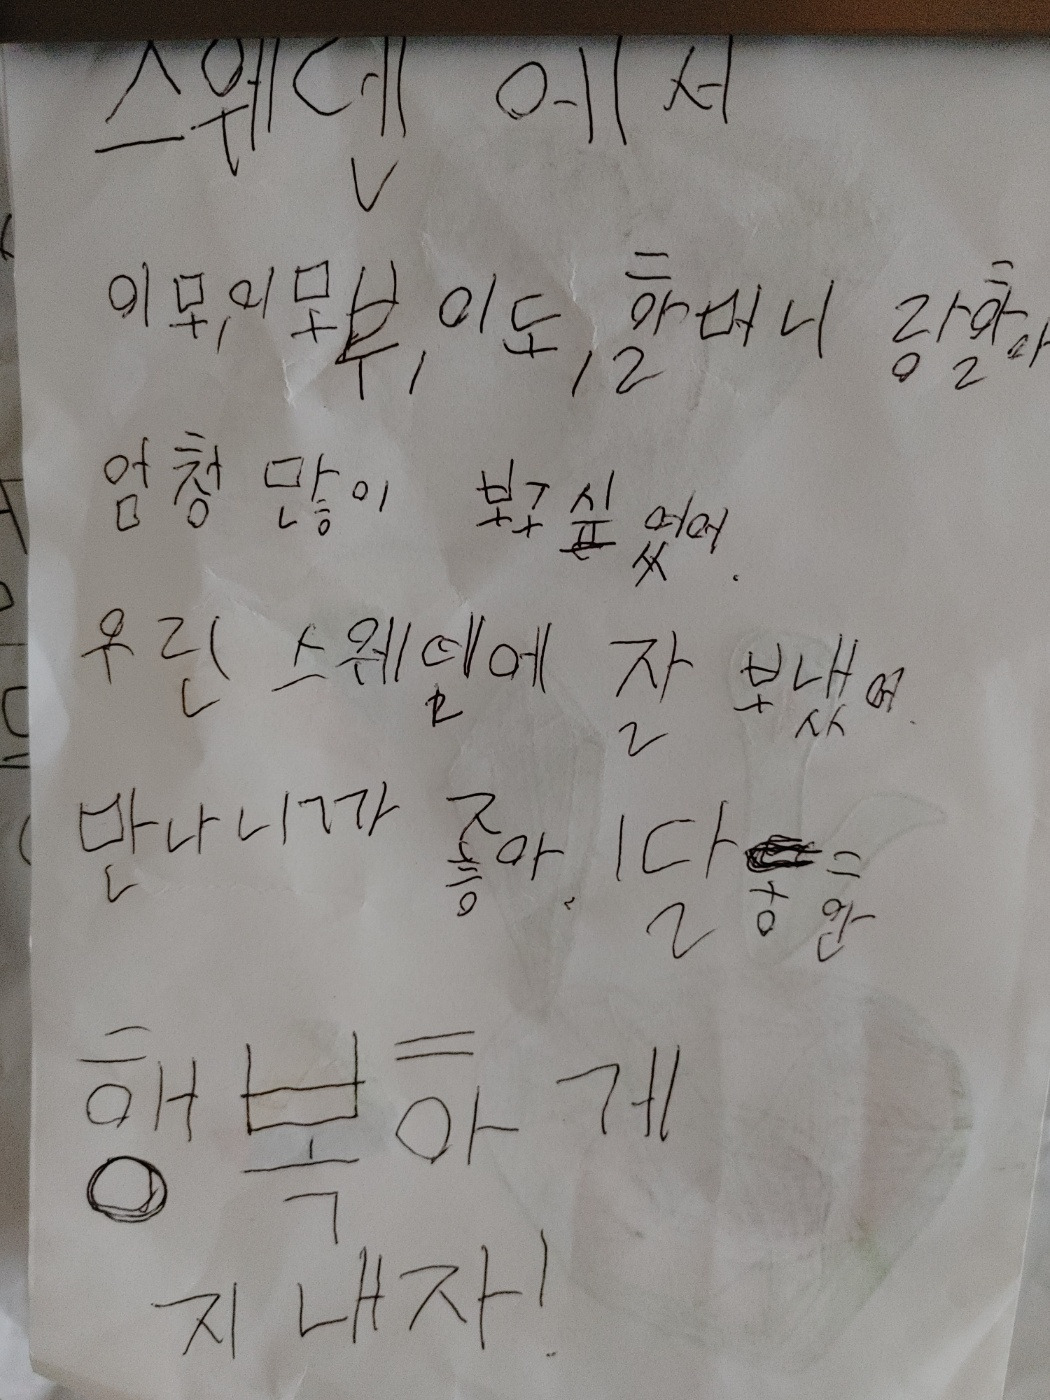 스웨덴 에서
이모, 이모부, 이도, 할머니 랑 할아
엄청 많이 보고 싶었어.
우린 스웨덴에 잘 보냈어.
만나니까 좋아. 1달 동 안
행복하게
지내자!